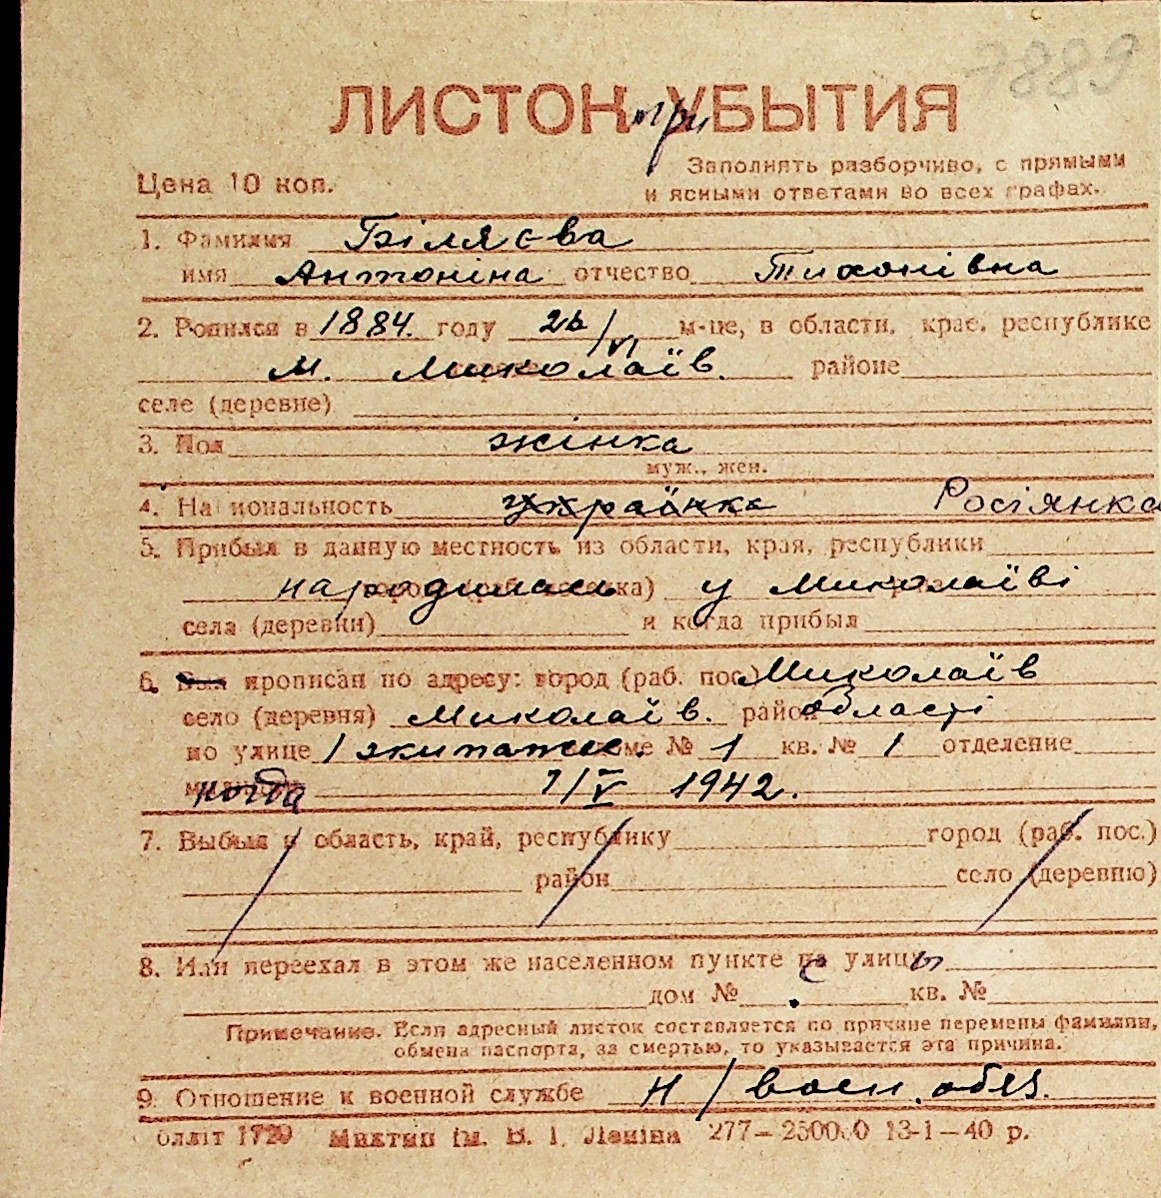 7889
ЛИСТОК при УБЫТИЯ
Цена 10 коп.
Заполнять разборчиво, с прямыми
и ясными ответами во всех графах.
1. Фамилия Біляєва
имя Антоніна отчество Тихонівна
2. Родился в 1884 году 26/VI м-це, в области, крае, республике
м. Миколаїв районе
селе (деревне)
3. Пол жінка
муж., жен.
4. Национальность українка Росіянка
5. Прибыл в данную местность из области, края, республики
народилась у Миколаїві
села (деревни) и когда прибыл
6. Был прописан по адресу: город (раб. пос.) Миколаїв
село (деревня) Миколаїв. район області
по улице 1 экипажн. доме № 1 кв. № 1 отделение
милиции когда 7/V 1942.
7. Выбыл в область, край, республику город (раб. пос.)
район село (деревню)
8. Или переехал в этом же населенном пункте с улицы
дом № кв. №
Примечание. Если адресный листок составляется по причине перемены фамилии,
обмена паспорта, за смертью, то указывается эта причина.
9. Отношение к военной службе н/воен. обяз.
облліт 1720 Миктип ім. В. І. Леніна 277–250000 13-1–40 р.